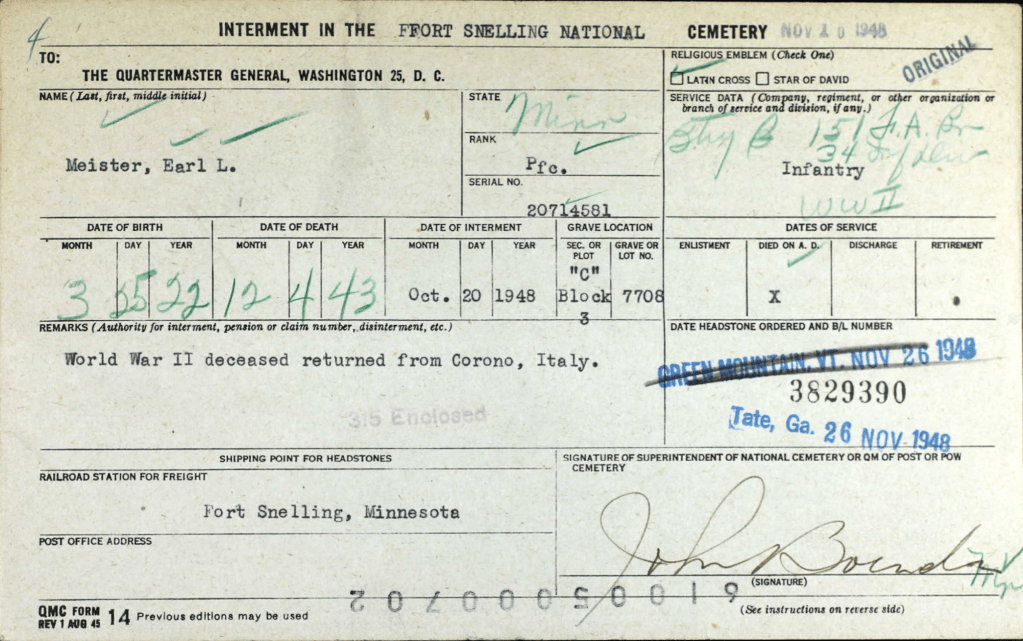 4
INTERMENT IN THE FFORT SNELLING NATIONAL CEMETERY NOV 10 1948
TO:
THE QUARTERMASTER GENERAL, WASHINGTON 25, D. C.
RELIGIOUS EMBLEM (Check One)
LATIN CROSS STAR OF DAVID
ORIGINAL
NAME (Last, first, middle initial)
Meister, Earl L.
STATE
Minn
RANK
Pfc.
SERIAL NO.
20714581
SERVICE DATA (Company, regiment, or other organization or branch of service and division, if any.)
Btry B 151 F.A. Bn
34 Inf Div
Infantry
WW II
DATE OF BIRTH DATE OF DEATH DATE OF INTERMENT GRAVE LOCATION DATES OF SERVICE
MONTH DAY YEAR MONTH DAY YEAR MONTH DAY YEAR SEC. OR PLOT GRAVE OR LOT NO. ENLISTMENT DIED ON A. D. DISCHARGE RETIREMENT
3 25 22 12 4 43 Oct. 20 1948 "C" Block 3 7708 X
REMARKS (Authority for interment, pension or claim number, disinterment, etc.)
World War II deceased returned from Corono, Italy.
315 Enclosed
DATE HEADSTONE ORDERED AND B/L NUMBER
GREEN MOUNTAIN, VT. NOV 26 1948
3829390
Tate, Ga. 26 NOV 1948
SHIPPING POINT FOR HEADSTONES
RAILROAD STATION FOR FREIGHT
Fort Snelling, Minnesota
POST OFFICE ADDRESS
SIGNATURE OF SUPERINTENDENT OF NATIONAL CEMETERY OR QM OF POST OR POW CEMETERY
(SIGNATURE)
(See instructions on reverse side)
QMC FORM
REV 1 AUG 45 14 Previous editions may be used